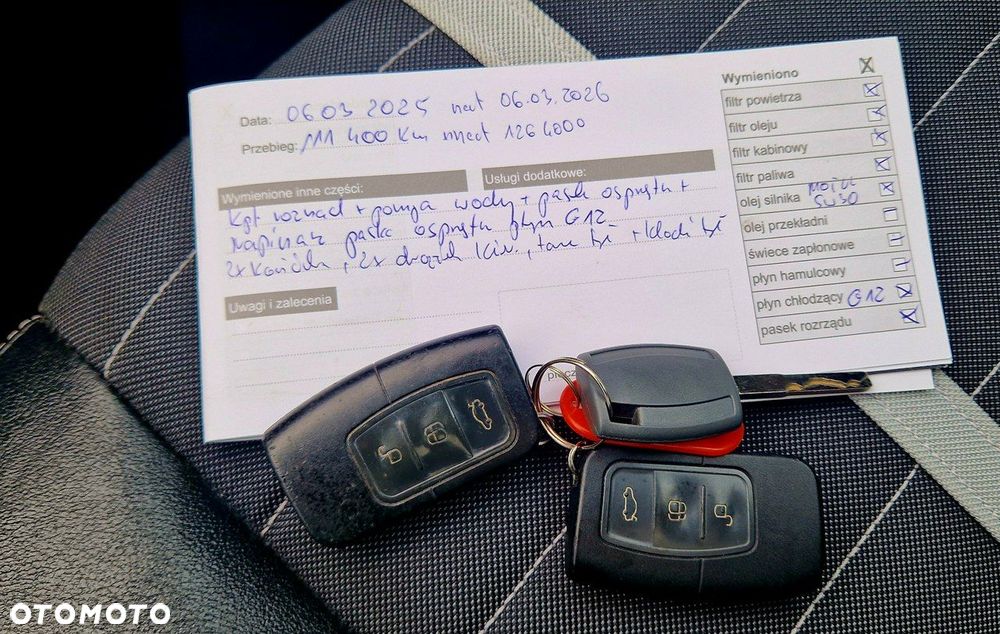 Data: 06.03 2025 next 06.03.2026
Przebieg: 111 400 Km next 126 4000
Wymienione inne części:
Usługi dodatkowe:
Kpt rozrząd + pompa wody + pasek osprzętu +
Napinacz paska osprzętu płyn G12
2x Końcówk, 2x drążek kier., tarcze tył + klocki tył
Uwagi i zalecenia
Wymieniono
filtr powietrza
filtr oleju
filtr kabinowy
filtr paliwa
olej silnika 5W30
olej przekładni
świece zapłonowe
płyn hamulcowy
płyn chłodzący G12
pasek rozrządu
OTOMOTO